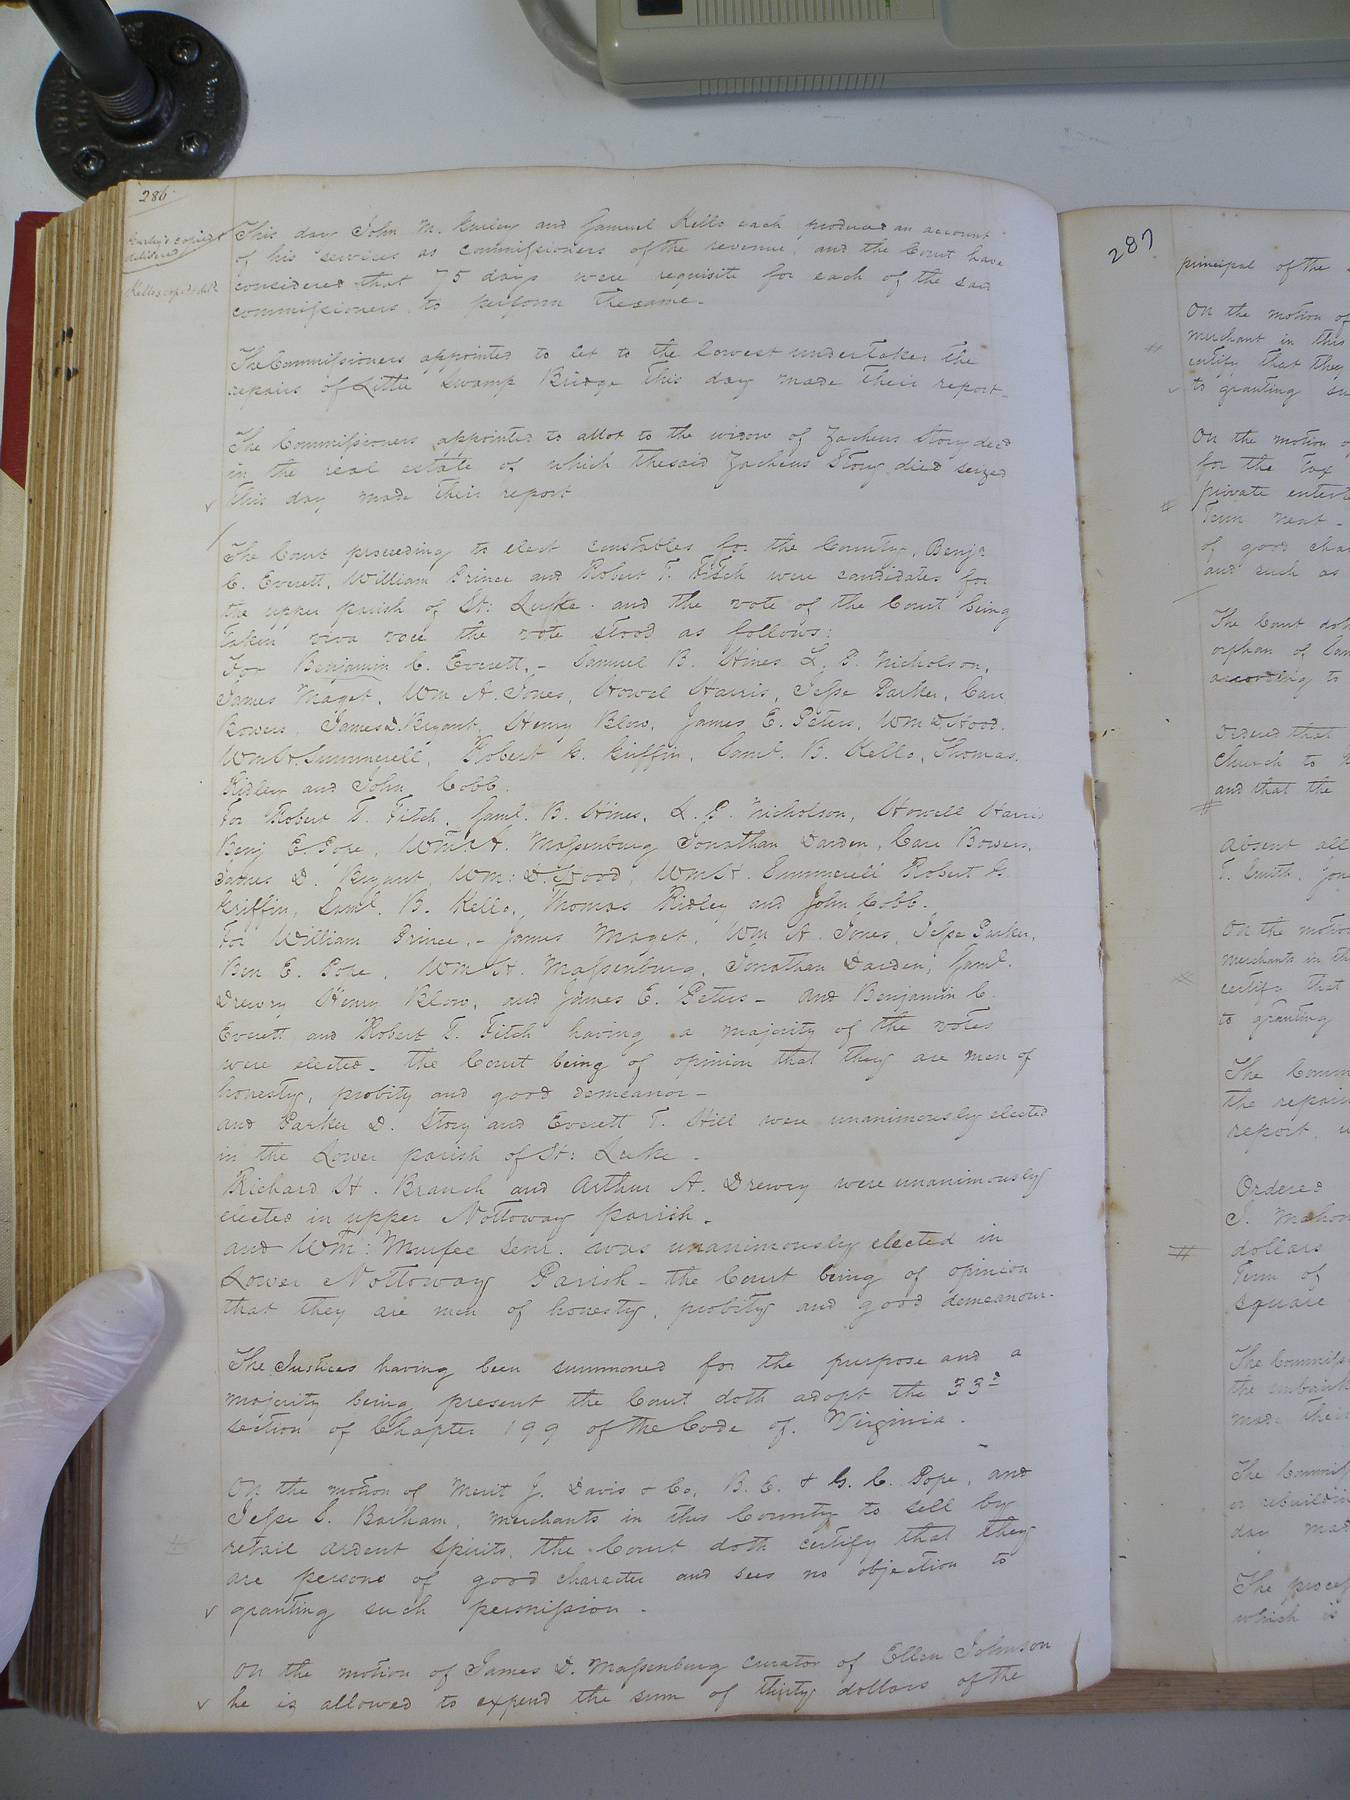 286
Gurley's copied &
delivered
Kello's copied & del.
This day John M. Gurley and Samuel Kello each produced an account
of his services as commissioners of the revenue, and the Court have
considered that 75 days were requisite for each of the said
commissioners to perform the same.
The Commissioners appointed to let to the lowest undertaker the
repairs of Little Swamp Bridge this day made their report.
The Commissioners appointed to allot to the widow of Zacheus Story decd
in the real estate of which the said Zacheus Story died seized
this day made their report
The Court proceeding to elect constables for the County, Benj.
C. Everett, William Prince and Robert T. Fitch were candidates for
the upper parish of St: Luke. and the vote of the Court being
taken viva voce the vote stood as follows:
For Benjamin C. Everett, - Samuel B. Hines L. P. Nicholson,
James Maget, Wm A. Jones, Howel Harris, Jesse Parker, Carr
Bowers, James D. Bryant, Henry Blow, James E. Peters, Wm D. Hood,
Wm H. Summerell, Robert G. Griffin, Saml. B. Kello, Thomas
Ridley and John Cobb.
For Robert T. Fitch, Saml. B. Hines, L. P. Nicholson, Howell Harris
Benj E. Pope, Wm H. Massenburg Jonathan Darden, Carr Bowers,
James D. Bryant, Wm: D. Hood, Wm H. Summerell Robert G.
Griffin, Saml. B. Kello, Thomas Ridley and John Cobb.
For William Prince, - James Maget, Wm A. Jones, Jesse Parker,
Ben E. Pope, Wm H. Massenburg, Jonathan Darden, Saml.
Drewry Henry Blow, and James E. Peters - and Benjamin C.
Everett and Robert T. Fitch having a majority of the votes
were elected - the Court being of opinion that they are men of
honesty, probity and good demeanor -
and Parker D. Story and Everett T. Hill were unanimously elected
in the Lower parish of St: Luke.
Richard H. Branch and Arthur A. Drewry were unanimously
elected in upper Nottoway parish.
and Wm: Murfee Senr. was unanimously elected in
Lower Nottoway Parish - the Court being of opinion
that they are men of honesty, probity and good demeanour.
The Justices having been summoned for the purpose and a
majority being present the Court doth adopt the 33d
section of Chapter 199 of the Code of Virginia.
On the motion of Merit J. Davis & Co, B. E. & G. C. Pope, and
Jesse S. Barham, merchants in this County to sell by
retail ardent spirits, the Court doth certify that they
are persons of good character and sees no objection to
granting such permission.
On the motion of James D. Massenburg curator of Ellen Johnson
he is allowed to expend the sum of thirty dollars of the
287
principal of the
On the motion of
merchant in this
certify that they
to granting su
On the motion of
for the Tax
private entert
Term next -
of good cha
and such as
The Court doth
orphan of
according to
Ordered that
Church to
and that the
Absent all
T. Smith,
On the motion
merchants in th
certify that
to granting
The Comm
the repair
report,
Ordered
J.
dollars
Term of
square
The Commiss
the
made their
The Commiss
or rebuildin
day mad
The process
which is